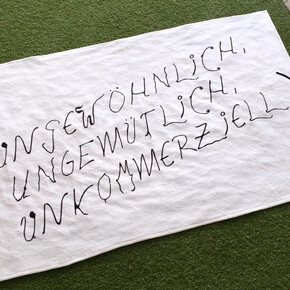 UNGEWÖHNLICH,
UNGEMÜTLICH,
UNKOMMERZIELL